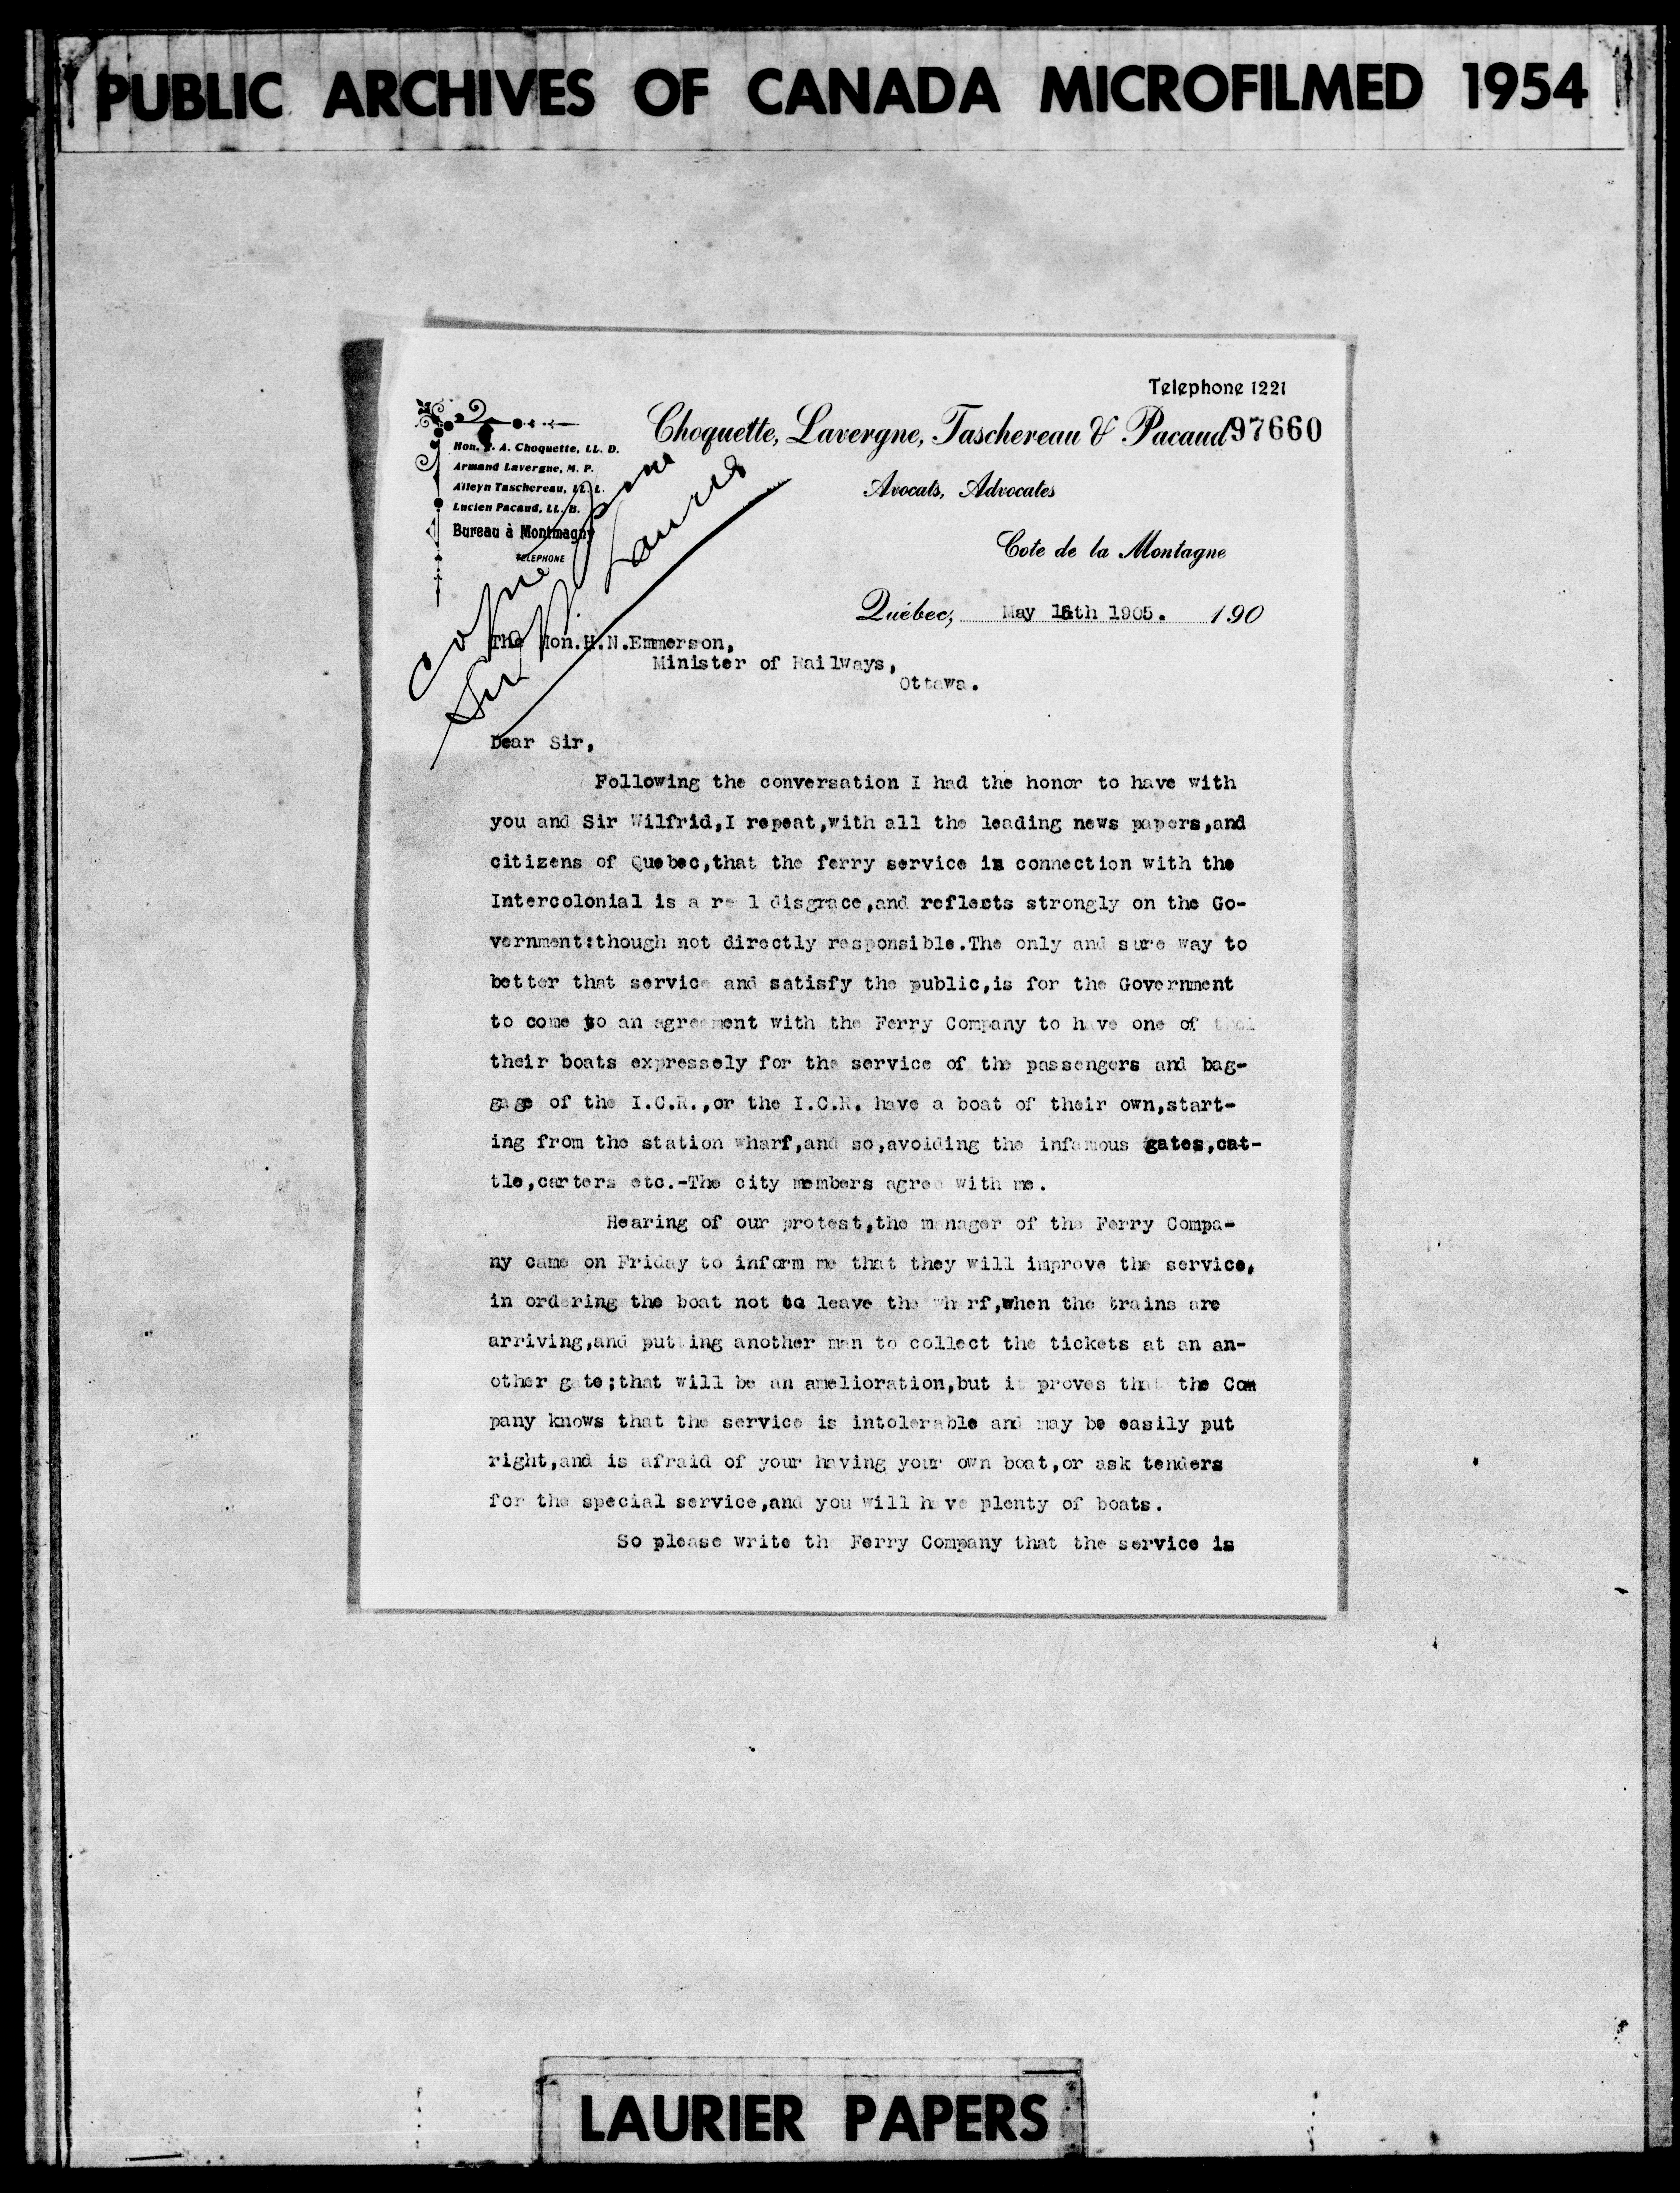 PUBLIC ARCHIVES OF CANADA MICROFILMED 1954
Telephone 1221
Choquette, Lavergne, Taschereau & Pacaud 97660
Hon. P. A. Choquette, LL. D.
Armand Lavergne, M. P.
Alleyn Taschereau, LL. L.
Lucien Pacaud, LL. B.
Bureau à Montmagny
TELEPHONE
Avocats, Advocates
Cote de la Montagne
Québec, May 15th 1905. 190
Sir Laurier
The Hon.H.N.Emmerson,
Minister of Railways,
Ottawa.
Dear Sir,
Following the conversation I had the honor to have with
you and Sir Wilfrid,I repeat,with all the leading news papers,and
citizens of Quebec,that the ferry service in connection with the
Intercolonial is a real disgrace,and reflects strongly on the Go-
vernment:though not directly responsible.The only and sure way to
better that service and satisfy the public,is for the Government
to come to an agreement with the Ferry Company to have one of
their boats expressely for the service of the passengers and bag-
gage of the I.C.R.,or the I.C.R. have a boat of their own,start-
ing from the station wharf,and so,avoiding the infamous gates,cat-
tle,carters etc.-The city members agree with me.
Hearing of our protest,the manager of the Ferry Compa-
ny came on Friday to inform me that they will improve the service,
in ordering the boat not to leave the wharf,when the trains are
arriving,and putting another man to collect the tickets at an an-
other gate;that will be an amelioration,but it proves that the Com
pany knows that the service is intolerable and may be easily put
right,and is afraid of your having your own boat,or ask tenders
for the special service,and you will have plenty of boats.
So please write the Ferry Company that the service is
LAURIER PAPERS